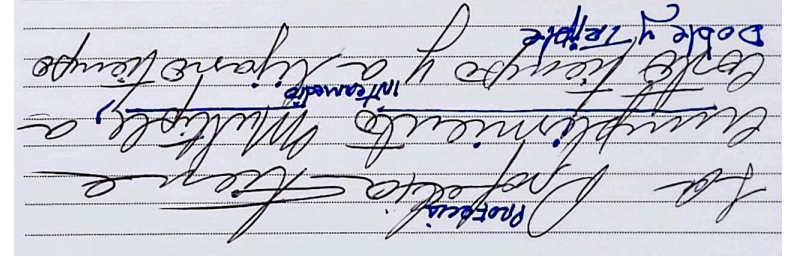 Profecia
La Profecia tiene
cumplimiento Multiple, a
intermedio
corto tiempo y a lejano tiempo
Doble y Triple